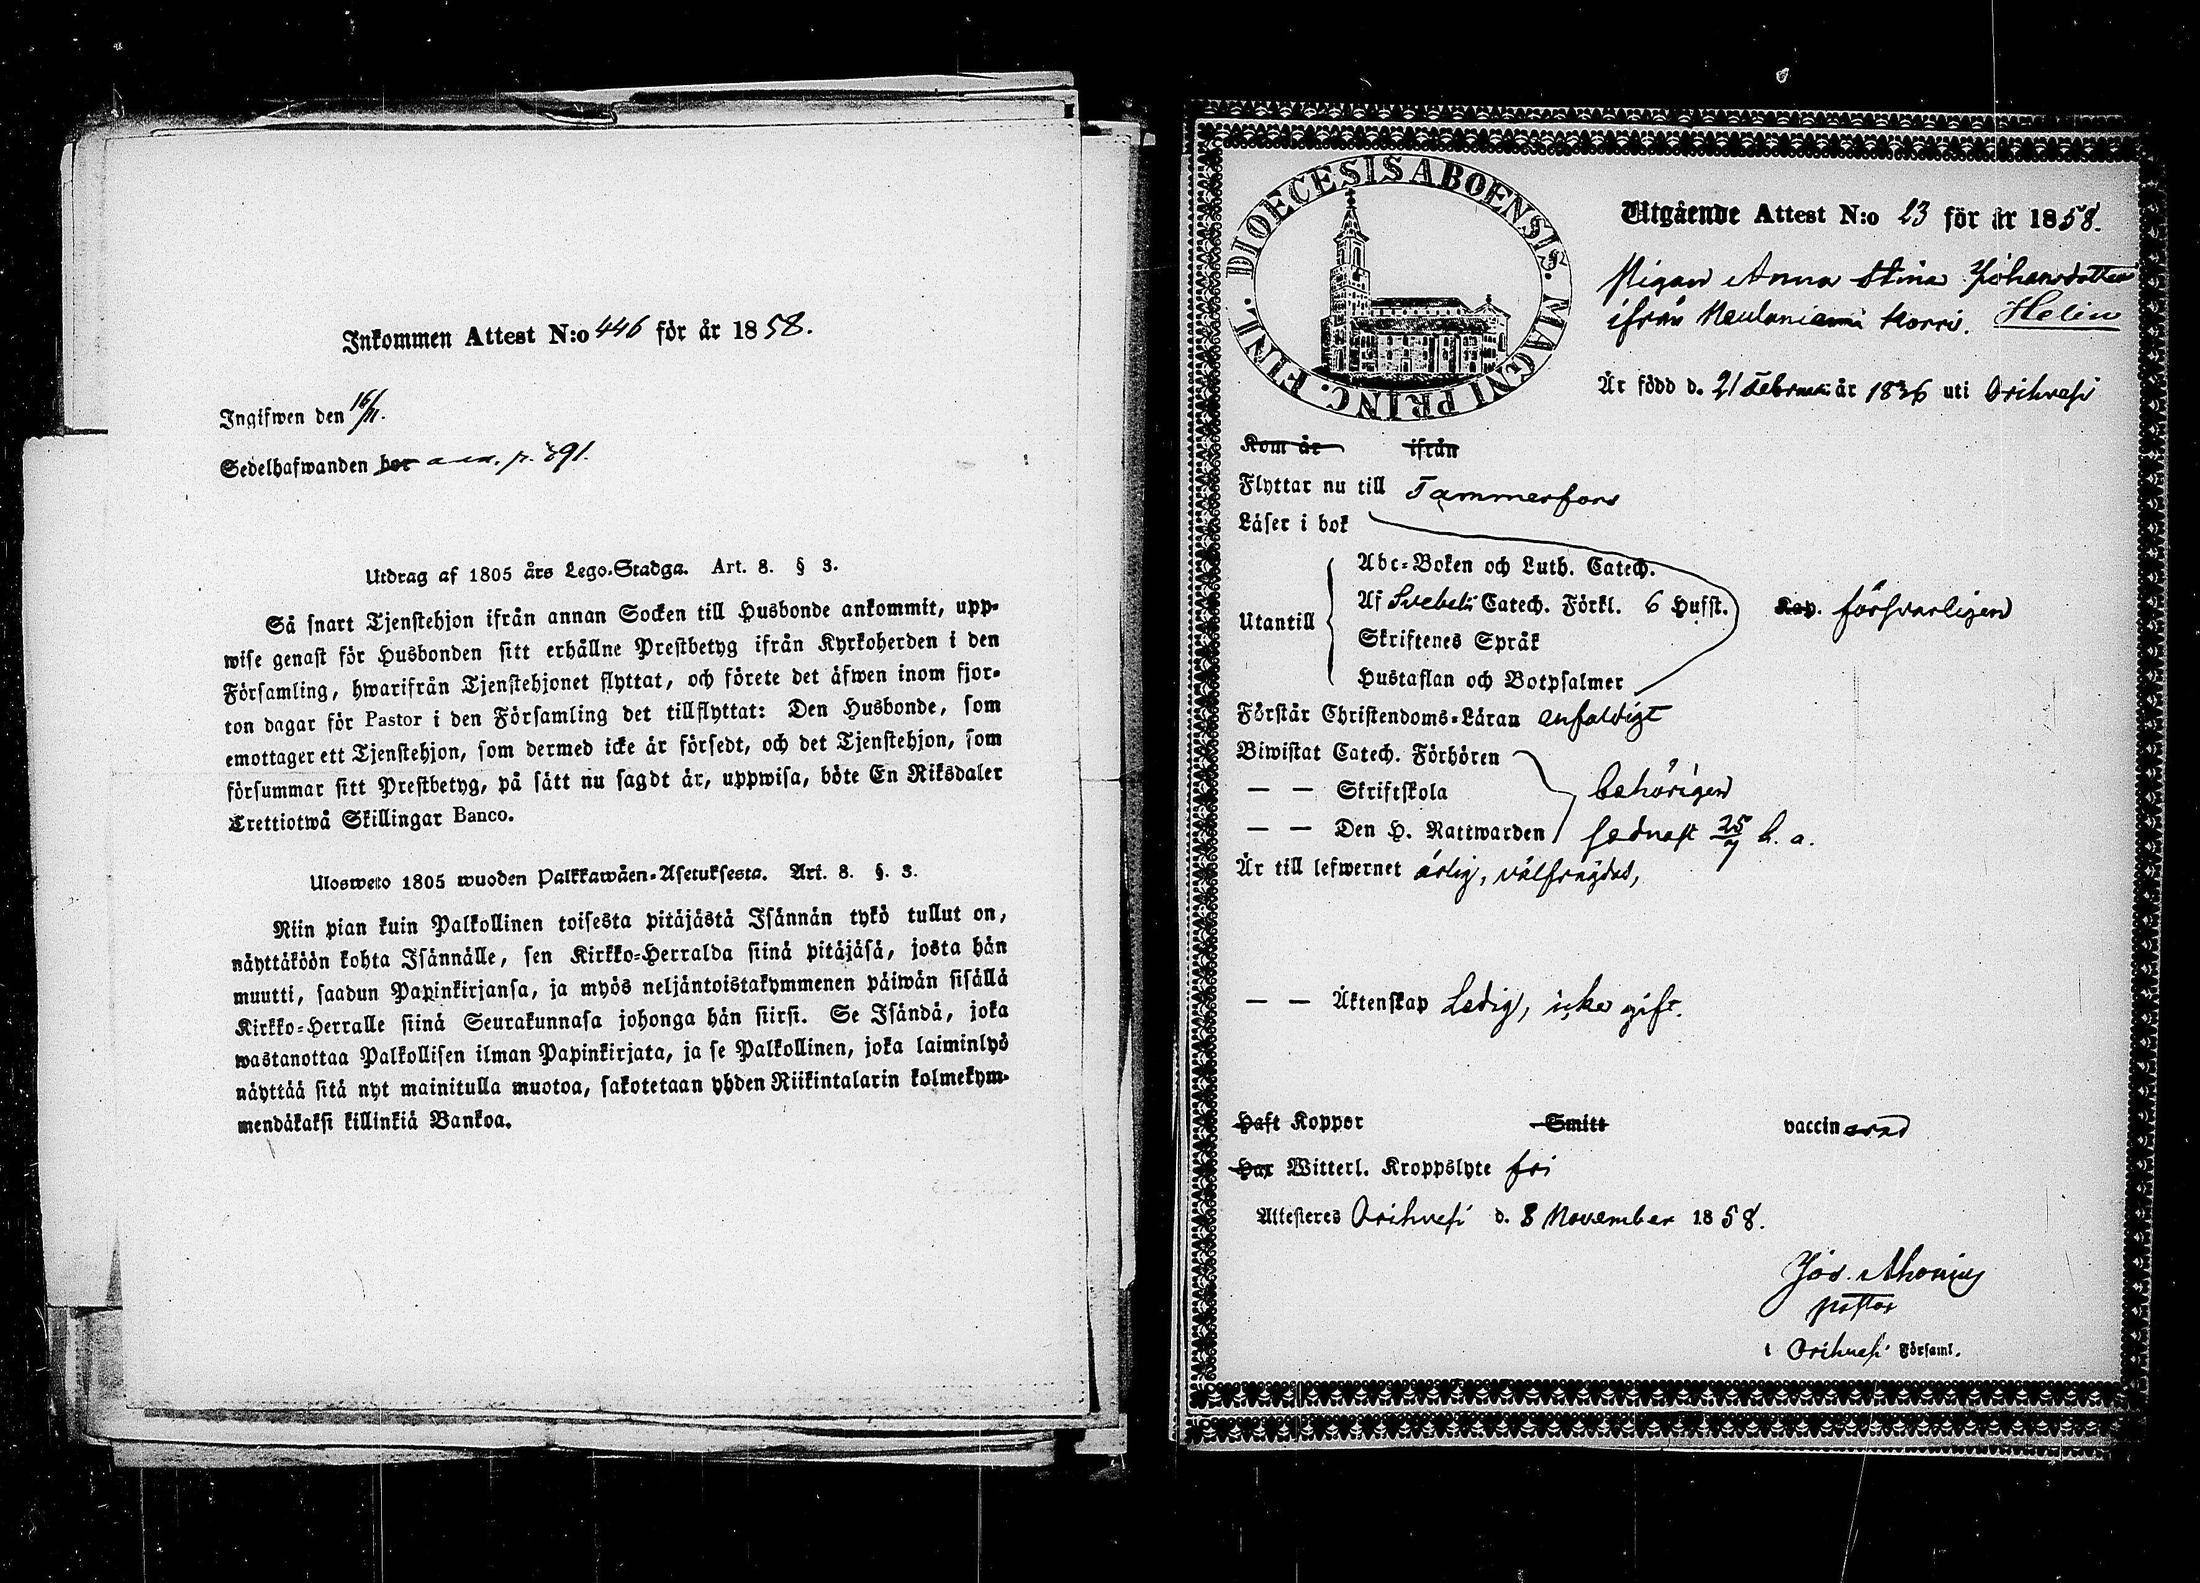 Inkommen Attest N:o 446 för år 1858.
Ingifwen den 16/11.
Sedelhafwanden bor ann. p. 391.
Utdrag af 1805 års Lego-Stadga. Art. 8. § 3.
Så snart Tjenstehjon ifrån annan Socken till Husbonde ankommit, upp-
wise genast för Husbonden sitt erhållne Prestbetyg ifrån Kyrkoherden i den
Församling, hwarifrån Tjenstehjonet flyttat, och förete det äfwen inom fjor-
ton dagar för Pastor i den Församling det tillflyttat: Den Husbonde, som
emottager ett Tjenstehjon, som dermed icke är försedt, och det Tjenstehjon, som
försummar sitt Prestbetyg, på sätt nu sagdt är, uppwisa, böte En Riksdaler
Trettiotwå Skillingar Banco.
Ulosweto 1805 wuoden Palkkawäen-Asetuksesta. Art. 8. §. 3.
Niin pian kuin Palkollinen toisesta pitäjästä Isännän tykö tullut on,
näyttäköön kohta Isännälle, sen Kirkko-Herralda siinä pitäjäsä, josta hän
muutti, saadun Papinkirjansa, ja myös neljäntoistakymmenen päiwän sisällä
Kirkko-Herralle siinä Seurakunnasa johonga hän siirsi. Se Isändä, joka
wastanottaa Palkollisen ilman Papinkirjata, ja se Palkollinen, joka laiminlyö
näyttää sitä nyt mainitulla muotoa, sakotetaan yhden Riikintalarin kolmekym-
mendäkaksi killinkiä Bankoa.
DIOECESIS ABOENSIS. MAGNI PRINC. FINL.
Utgående Attest N:o 23 för år 1858.
Pigan Anna Stina Johansdotter
ifrån Neulaniemi Korri. Helin
Är född d. 21 Februari år 1836 uti Orihvesi
Kom år ifrån
Flyttar nu till Tammerfors
Läser i bok
Utantill
Abc-Boken och Luth. Catech.
Af Svebeli Catech. Förkl. 6 Hufst. Kap. försvarligen
Skriftenes Språk
Hustaflan och Botpsalmer
Förstår Christendoms-Läran enfaldigt
Biwistat Catech. Förhören
— — Skriftskola behörigen
— — Den H. Nattwarden sednast 25/7 h. a.
Är till lefwernet ärlig, välfrägdad,
— — Äktenskap Ledig, icke gift.
Haft Koppor Smitt vaccinerad
Har Witterl. Kroppslyte fri
Attesteres Orihvesi d. 8 November 1858.
Jos. Ahonius
pastor
i Orihvesi Församl.